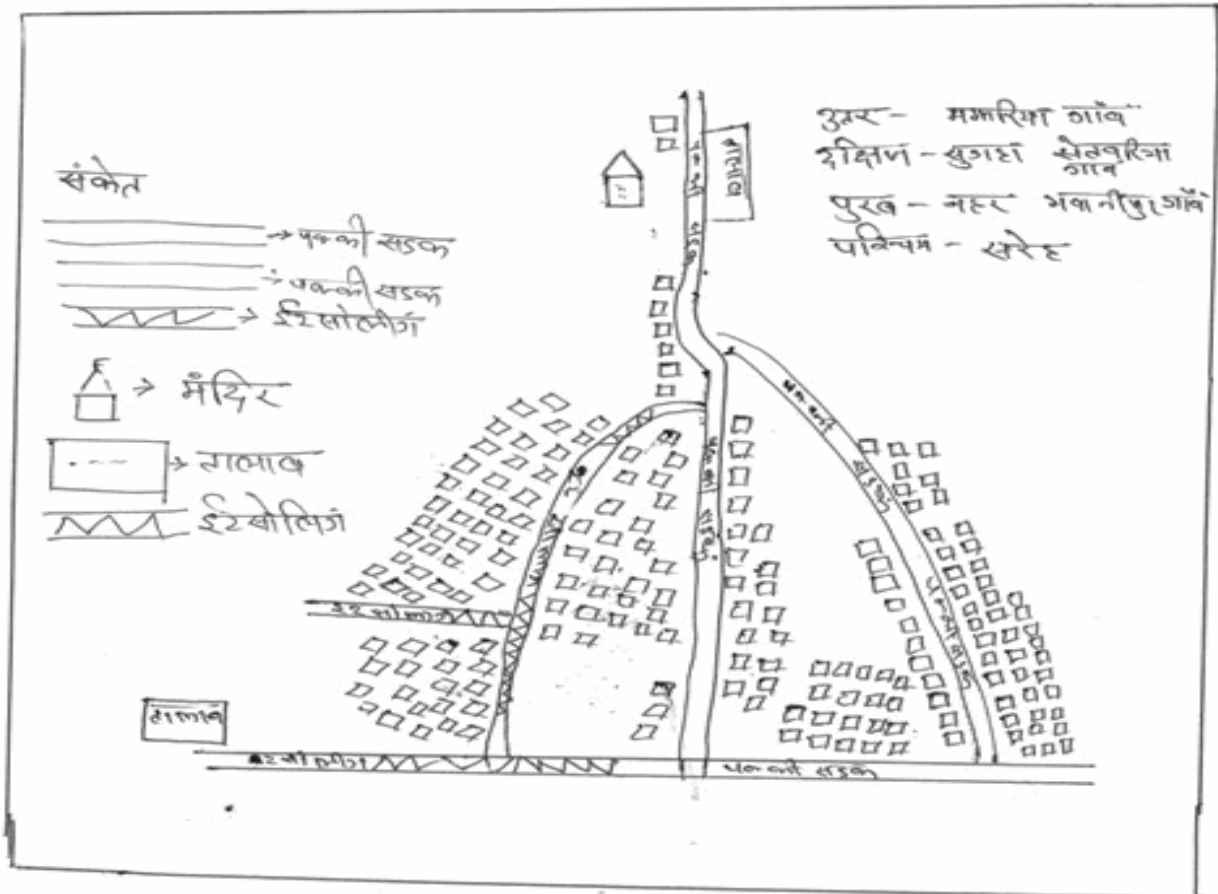 संकेत
पक्की सडक
पक्की सडक
ईटसोलींग
मंदिर
तालाब
ईटसोलिगं
उत्तर - मझरिया गाँव
दक्षिण - सुगहा सेनवरिया
गाव
पुरब - नहर भवानीपुर गाँव
पश्चिम - सरेह
पक्की सडक
तालाब
पक्की सडक
पक्की सडक
पक्की सडक
ईट सोलींग
तालाब
ईट सोलींग
पक्की सडक